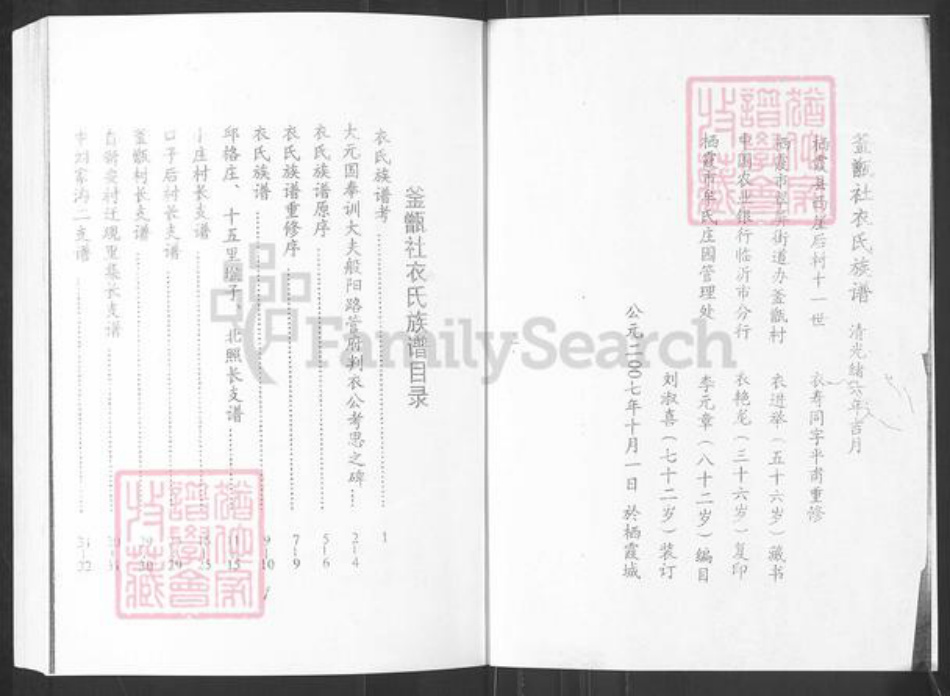 釜甑社衣氏族谱 清光绪六年吉月
栖霞县西崖后村十一世 衣寿同字平甫重修
栖霞市街道办釜甑村 衣进举（五十六岁）藏书
中国农业银行临沂市分行 衣艳（三十六岁）复印
栖霞市牟氏庄园管理处 李元章（八十二岁）编目
刘淑喜（七十二岁）装订
公元二00七年十月一日 於栖霞城
釜甑社衣氏族谱目录
衣氏族谱考 1
大元国奉训大夫般阳路营府判衣公考思之碑 2-4
衣氏族谱原序 5-6
衣氏族谱重修序 7-9
衣氏族谱 9-10
邱格庄、十五里堠子、北照长支谱 11-15
小庄村长支谱 15-25
口子后村长支谱 29
釜甑村长支谱 30
村迁现里集长支谱
家沟二支谱
FamilySearch